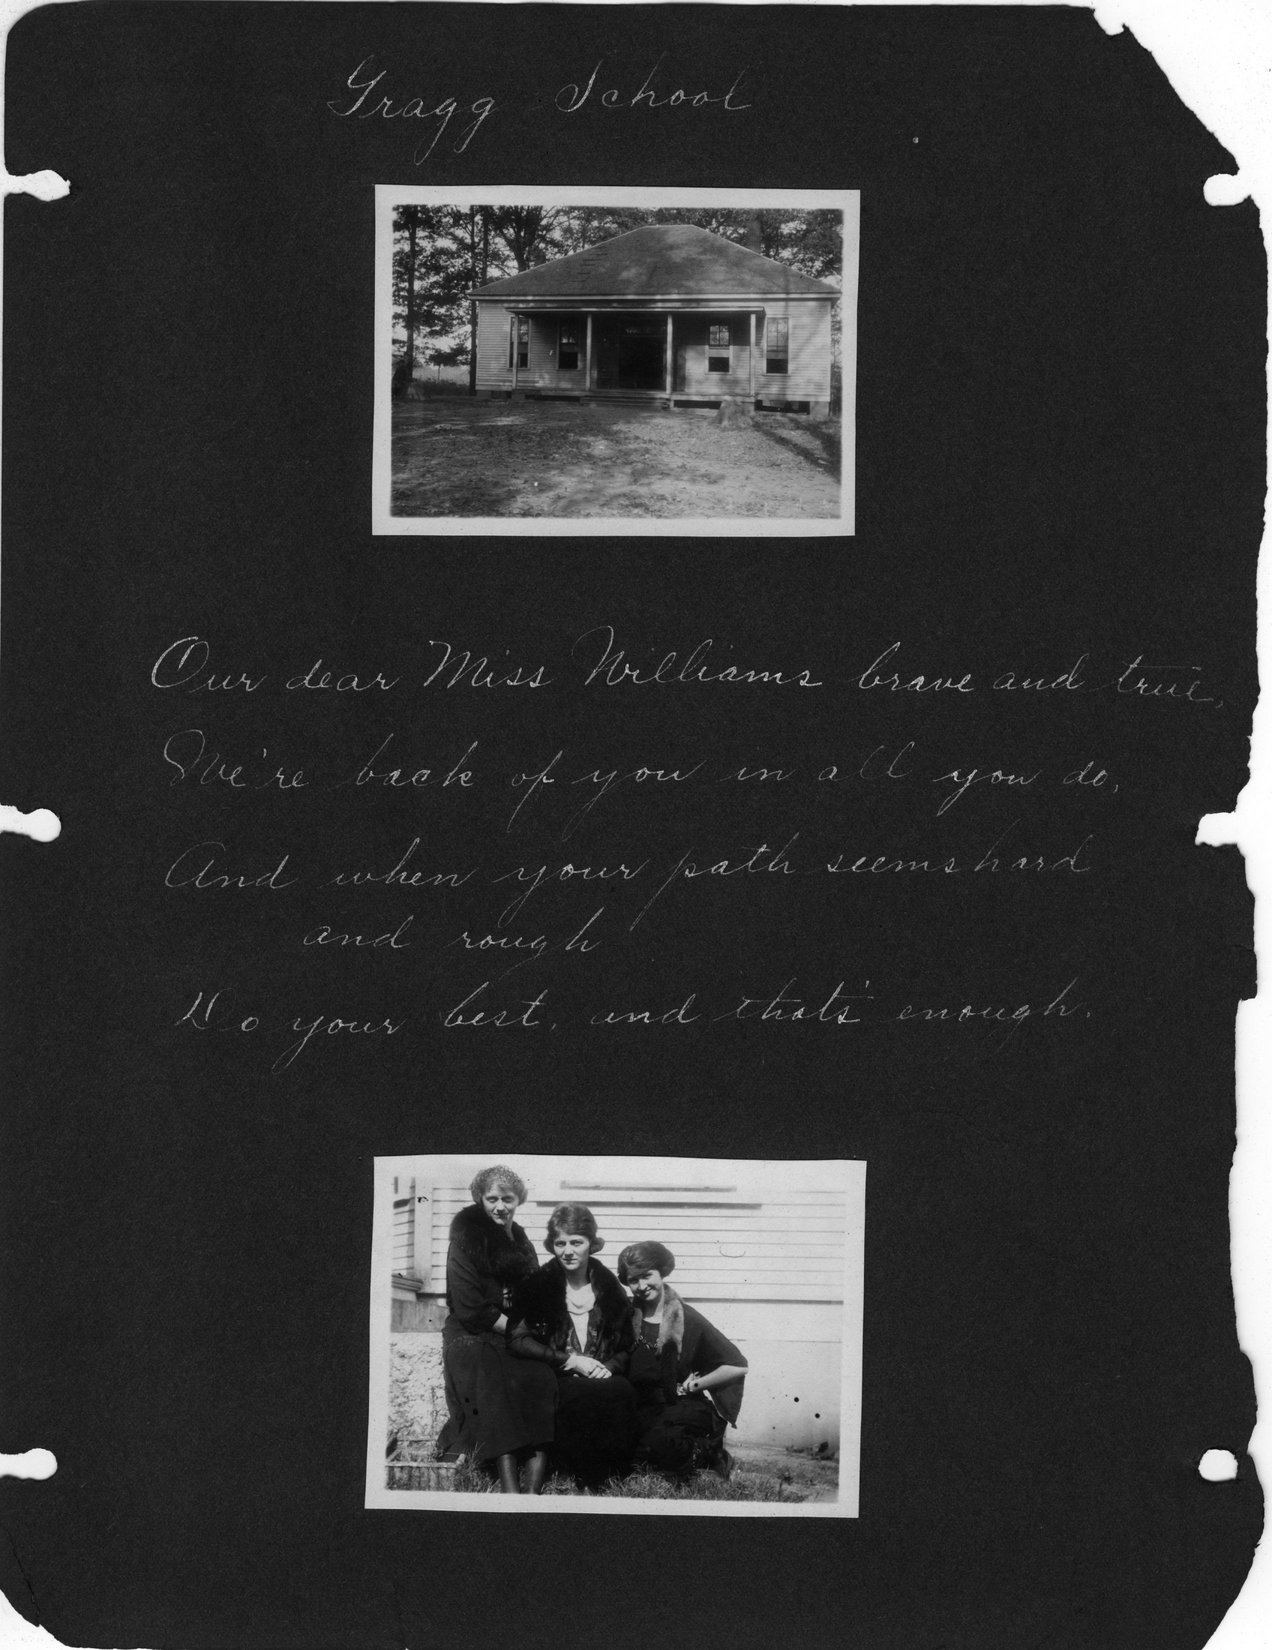 Gragg School
Our dear Miss Williams brave and true,
We're back of you in all you do,
And when your path seems hard
and rough
Do your best, and that's enough.